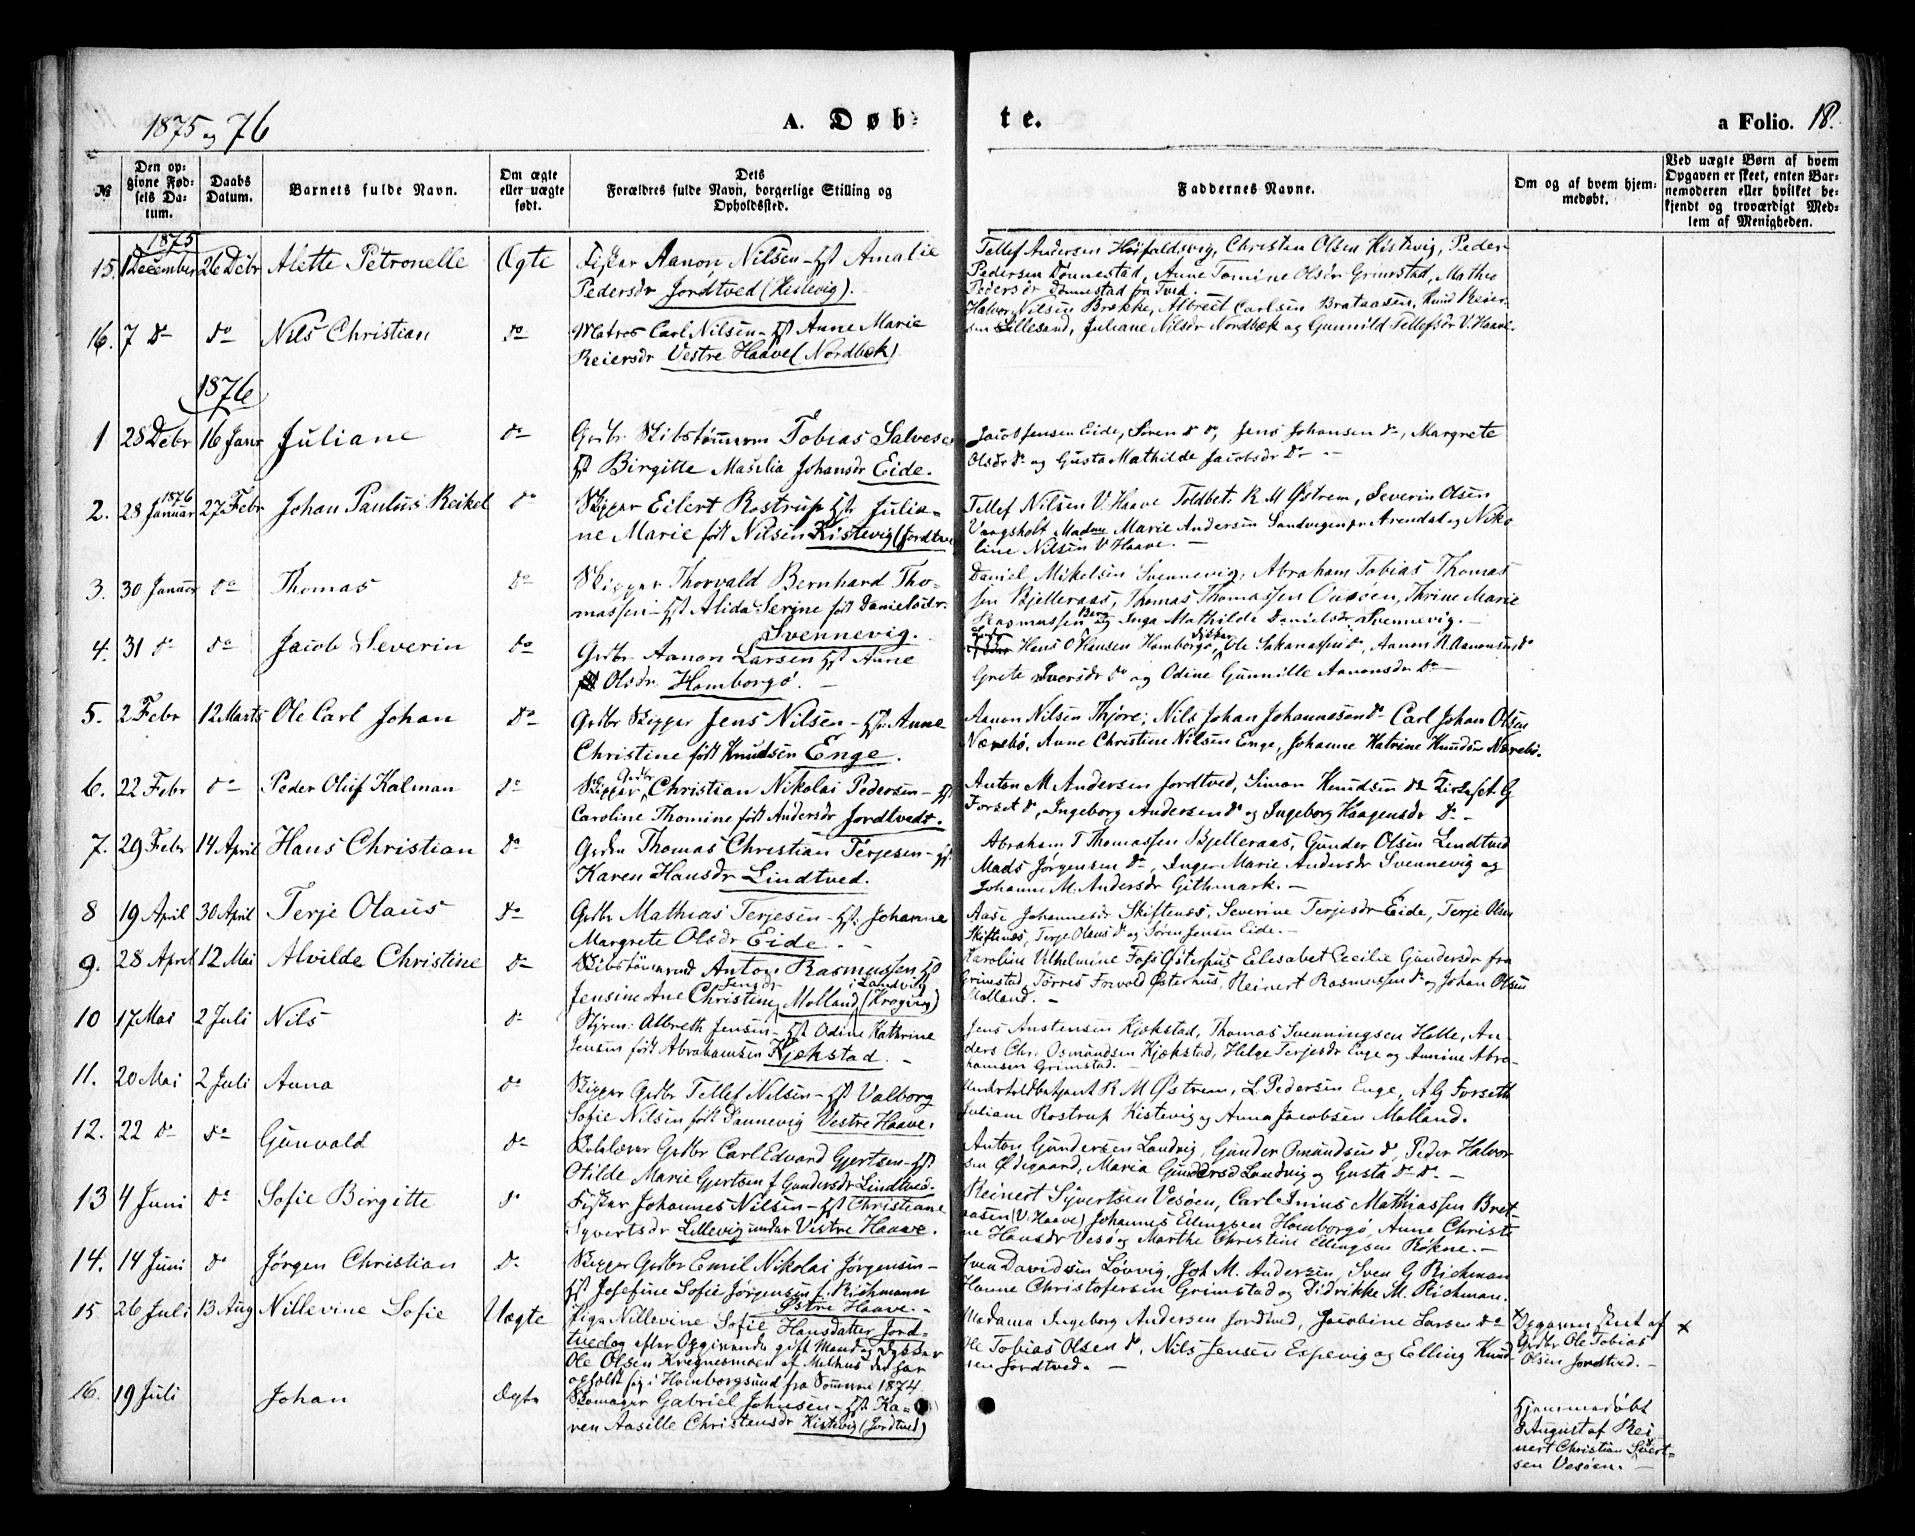 1875 og 76
A. Døb-
te.
a Folio. 18.
№
Den op-
givne Fød-
sels Da-
tum.
Daabs
Datum.
Barnets fulde Navn.
Om ægte
eller uægte
født.
Dets
Forældres fulde Navn, borgerlige Stilling og
Opholdssted.
Faddernes Navne.
Om og af hvem hjem-
medøbt.
Ved uægte Børn af hvem
Opgaven er skeet, enten Bar-
nemoderen eller hvilket be-
kjendt og troværdigt Med-
lem af Menigheden.
1875
15. 1 December 26 Debr Alette Petronelle Ægte Fisker Aanon Nilsen - Hst Amalie
Pedersdr Jordtved (Kistevig).
Tellef Andersen Høifaldsvig, Christen Olsen Kistevig, Peder
Pedersen Dønnestad, Anne Tomine Olsdr Grimstad, Mathea
Pedersdr Dønnestad fra Tved. -
16. 7 Do do Nils Christian do Matros Carl Nilsen - Hst Anne Marie
Reiersdr Vestre Haave (Nordbæk).
Halvor Nilsen Brække, Albreit Carlsen Brataasen, Knud Reier-
sen Lillesand, Juliane Nilsdr Nordbæk og Gunnild Tellefsdr V. Haave.
1876
1 28 Debr 16 Janr Juliane do Grdbr Skibstømmerm Tobias Salvesen
Hst Birgitte Masilia Johansdr Eide.
Jacob Jensen Eide, Søren do do, Jens Johansen do, Margrete
Olsdr do og Gusta Mathilde Jacobsdr Do -
2. 28 Januar 1876 27 Febr Johan Paulus Reikel do Skipper Eilert Rostrup Hst Julia-
ne Marie født Nilsen Kistevig (Jordtved
Tellef Nilsen V. Haave Toldbet. R M Østrem, Severin Olsen
Vaagsholt Madam Marie Andersen Sandvigen pr Arendal og Niko-
line Nilsen V Haave. -
3. 30 Januar do Thomas Do Skipper Thorvald Bernhard Tho-
massen - Hst Alida Serine født Danielsdr.
Svennevig.
Daniel Mikelsen Svennevig, Abraham Tobias Thomas
sen Bjelleraas, Thomas Thomassen, Thrine Marie
Rasmussen Berg og Inga Mathilde Danielsdr Svennevig. -
4. 31 do do Jacob Severin Do Grdbr. Aanon Larsen Hst Anne
Olsdr. Homborgø. -
Hans O Hansen Homborgø, Ole Sakariassen do, Aanon R. Aanonsen do
Grete Iversdr do og Odine Gunnille Aanonsdr Do -
5. 2 Febr 12 Marts Ole Carl Johan Do Grdbr Skipper Jens Nilsen - Hst Anne
Christine født Knudsen Enge.
Aanon Nilsen Thjøre, Nils Johan Johannesen do Carl Johan Olsen
Nærebø, Anne Christine Nilsen Enge, Johanne Katrine Knudsen Nærebø.
6. 22 Febr do Peder Oluf Kalman do Skipper Grdbr Christian Nikolai Pedersen - Hst
Caroline Thomine født Andersdr Jordtvedt.
Anton M Andersen Jordtved, Simon Knudsen do Kirkes. A. G
Forset do, Ingeborg Andersen do og Ingeborg Kaagensdr Do -
7. 29 Febr 14 April Hans Christian Do Grdbr Thomas Christian Terjesen - Hst
Karen Hansdr Lindtved.
Abraham T Thomassen Bjelleraas, Gunder Olsen Lindtved
Mads Jørgensen do, Inger Marie Andersdr Svennevig og
Johanne M. Andersdr Githmark. -
8 19 April 30 April Terje Olaus Do Grdbr Mathias Terjesen - Hst. Johanne
Margrete Olsdr Eide. -
Aase Johannesdr Skiftenes, Severine Terjesdr Eide, Terje Olsen
Skiftenes, Terje Olaus do og Søren Jensen Eide. -
9. 28 April 12 Mai Alvilde Christine do Skibstømrmd Anton Rasmussen Hst
Jensine Ane Christine Jensdr Molland i Landvig (Kroging)
Karoline Vilhelmine Foss Østerhus, Elesabet Cecilie Gundersdr fra
Grimstad, Tørres Frivold Østerhus, Reinert Rasmussen do og Johan Olsen
Molland. -
10 17 Mai 2 Juli Nils do Styrm: Albreth Jensen - Hst Odine Kathrine
Jensen født Abrahamsen Kjækstad. -
Jens Austensen Kjækstad, Thomas Svenningsen Helle, An-
ders Chr. Osmundsen Kjækstad, Helge Terjesdr Enge og Annine Abra-
hamsen Grimstad. -
11. 20 Mai 2 Juli Anna do Skipper Grdbr Tellef Nilsen - Hst Valborg
Sofie Nilsen født Dannevig Vestre Haave.
Undertoldbetjent R M Østrem, L. Pedersen Enge, A G Forseth
Juliane Rostrup Kistevig og Anna Jacobsen Molland.
12. 22 do do Gunvald do Grdbr Carl Edvard Gjertsen - Hst
Otilde Marie Gjertsen f Gundersdr Lindtved.
Anton Gundersen Landvig, Gunder Omundsen do, Peder Halvor
sen Ødegaard, Maria Gundersd Landvig og Gusta Do Do. -
13 4 Juni Do Sofie Birgitte do Fisker Johannes Nilsen - Hst Christiane
Syvertsdr Lillevig under Vestre Haave.
Reinert Syvertsen Vesøen, Carl Inius Mathiassen Bret-
aasen (V. Haave) Johannes Ellingsen Homborgø, Anne Christi
ne Hansdr Vesø og Marthe Christine Ellingsen Røkne. -
14. 14 Juni do Jørgen Christian do Skipper Grdbr Emil Nikolai Jørgensen -
Hst Josefine Sofie Jørgensen f. Richmann
Østre Haave. -
Sven Davidsen Løvvig, Joh M. Andersen, Sven G Richman
Hanne Christofersen Grimstad og Didrikke M. Richman.
15 26 Juli 13 Aug Nillevine Sofie Uægte Pige Nillevine Sofie Hansdatter Jord-
tved og efter Opgivende gift Mand Dykker
Ole Olsen Kregnesmoen af Melhus der har
opholdt sig i Homborgsund fra Sommeren 1874.
Madame Ingeborg Andersen Jordtved, Jacobine Larsen do
Ole Tobias Olsen do, Nils Jensen Espevig og Elling Knud-
sen Jordtved. -
x Opgaven skeet af
Grdbr Ole Tobias
Olsen Jordtved. -
x
16. 19 Juli Johan Ægte Skomager Gabriel Johnsen - Hst Ka-
ren Aaselle Christensdr Kistevig (Jordtved)
Hjemmedøbt
8 August af Rei-
nert Christian Syvert-
sen Vesøen. -